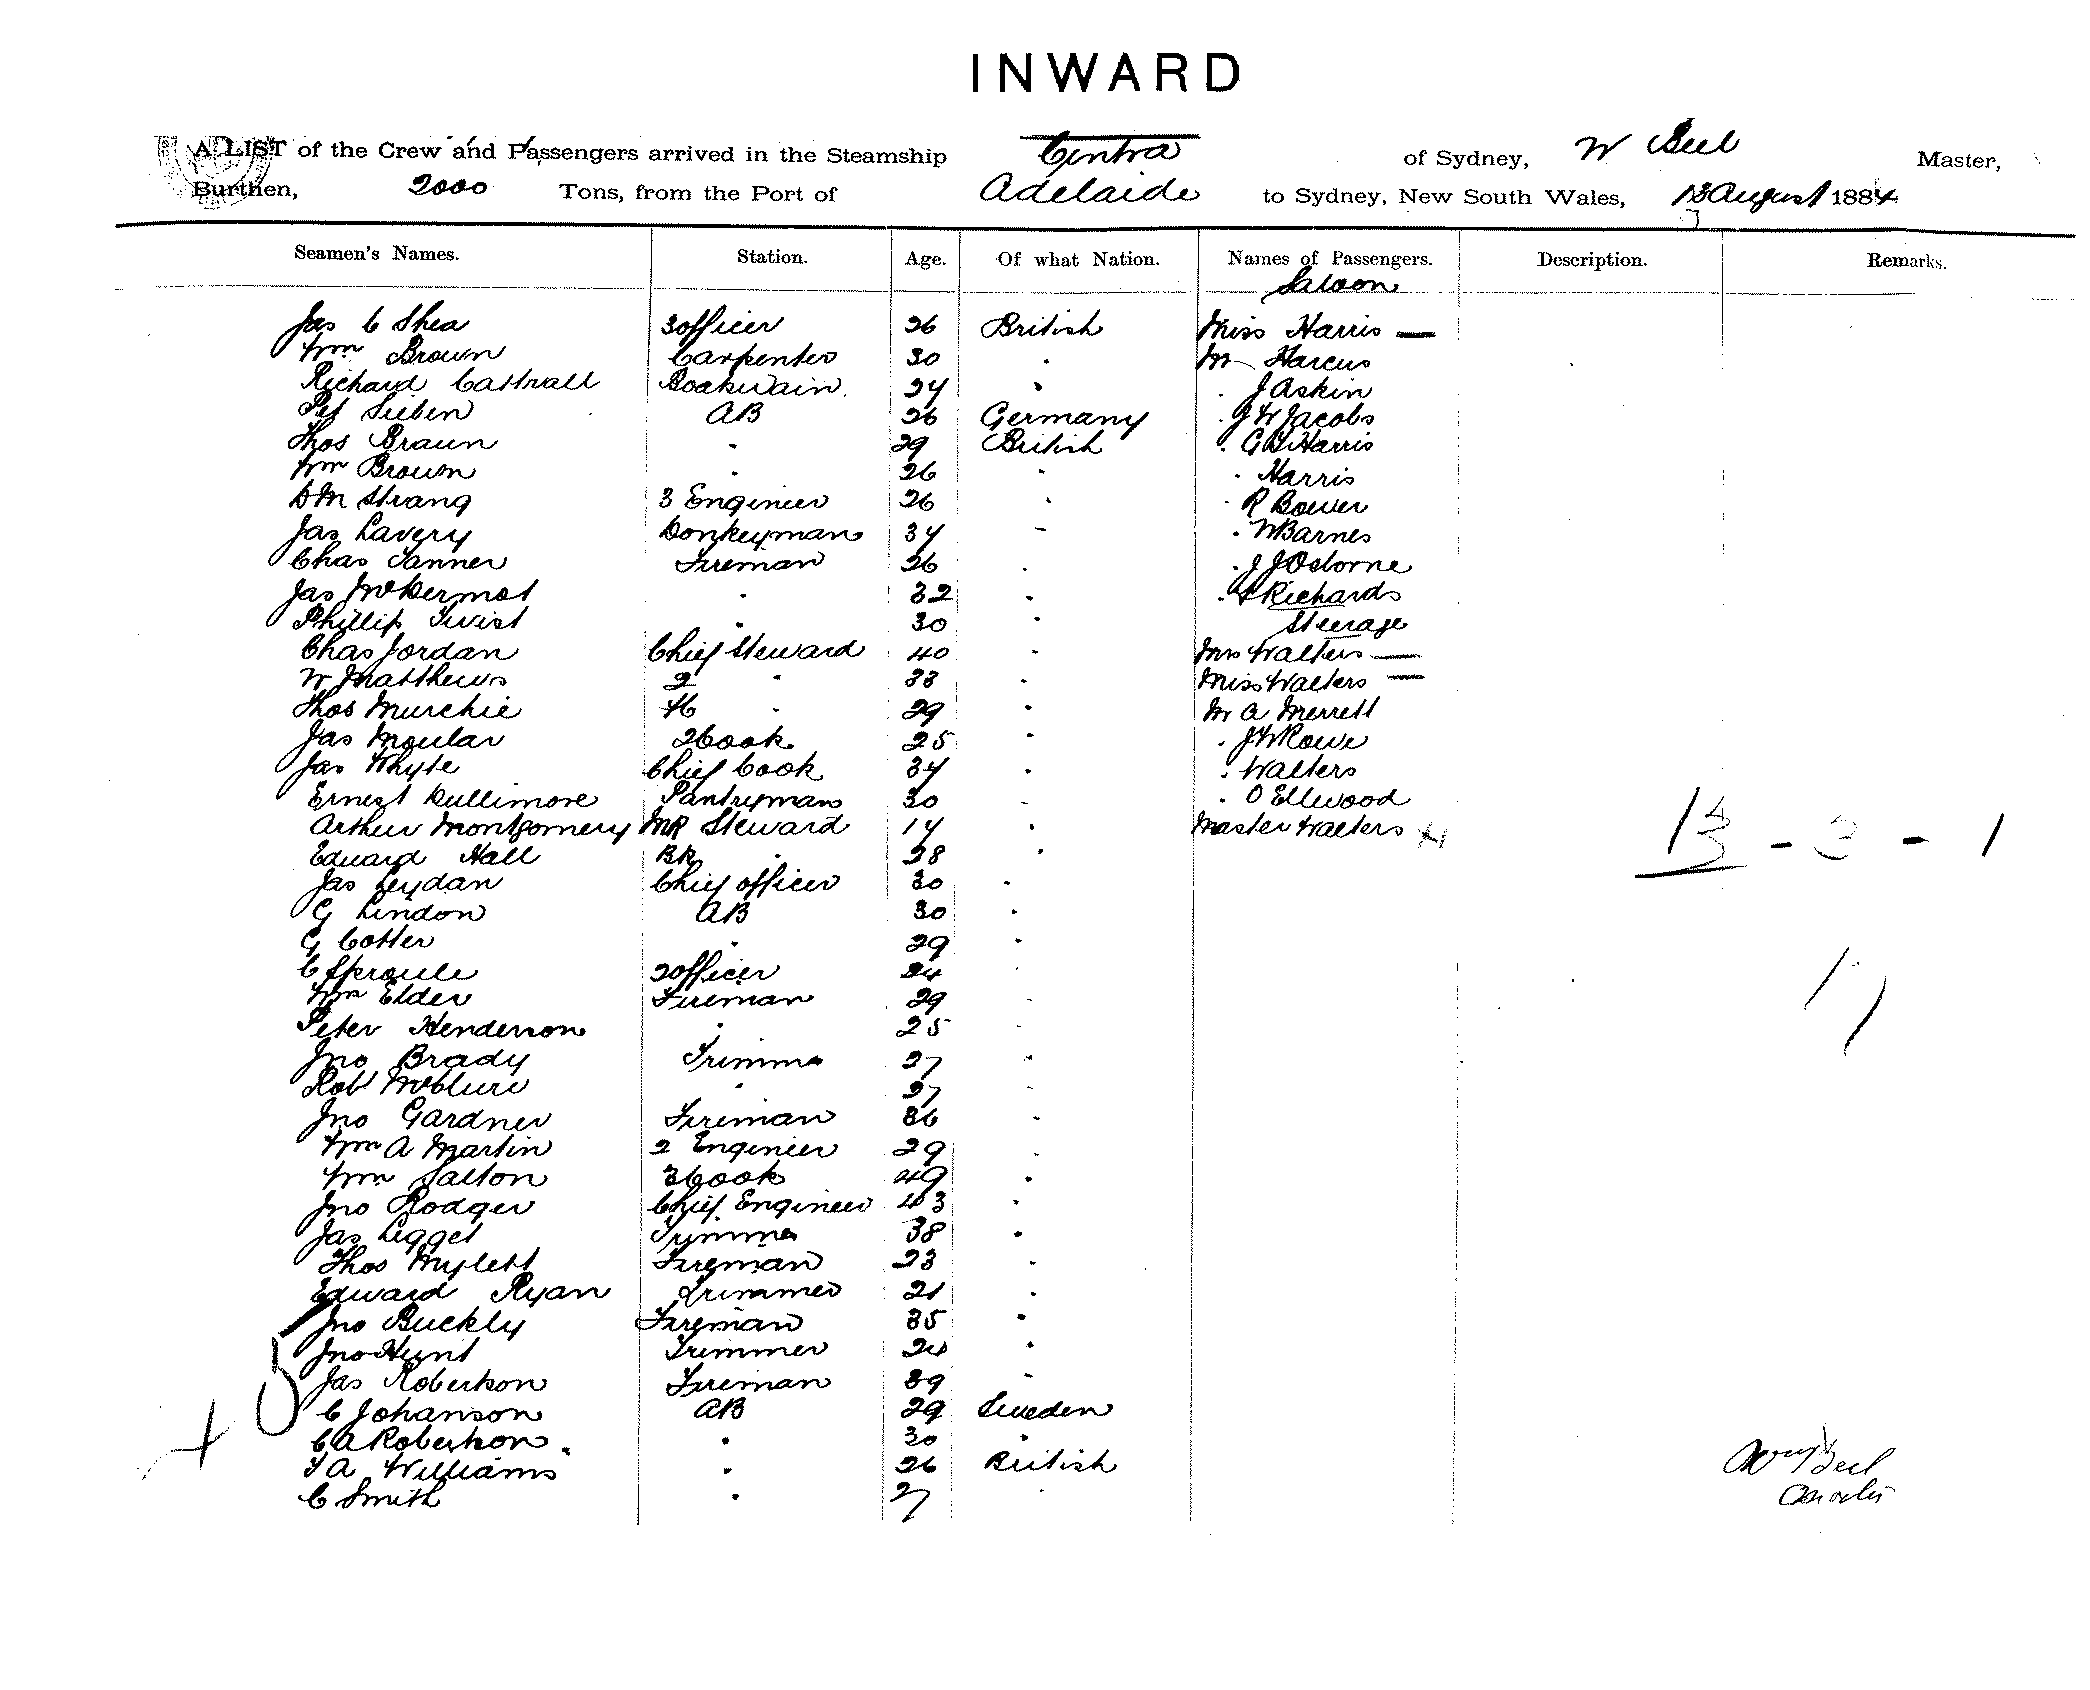 INWARD
A LIST of the Crew and Passengers arrived in the Steamship Cintra of Sydney, W Beel Master,
Burthen, 2000 Tons, from the Port of Adelaide to Sydney, New South Wales, 13 August 1884
Seamen's Names. Station. Age. Of what Nation. Names of Passengers. Description. Remarks.
Saloon
Jas C Shea 3 officer 26 British Miss Harris —
Wm Brown Carpenter 30 " Mr Harcus
Richard Cattrall Boatswain 24 " " J Askin
Pet Sieben AB 26 Germany " J W Jacobs
Thos Braun " 29 British " G B Harris
Wm Brown " 26 " " Harris
D M Strang 3 Engineer 26 " " R Bower
Jas Lavery Donkeyman 34 " " W Barnes
Chas Tanner Fireman 26 " " J J Osborne
Jas McDermot " 32 " " Richards
Phillip Twist " 30 Steerage
Chas Jordan Chief Steward 40 " Mrs Walters —
W Matthews 2 " 33 " Miss Walters —
Thos Murchie " 29 " Mr A Merrett
Jas Moular 2 Cook 25 " " J W Rowe
Jas Whyte Chief Cook 34 " " Walters
Ernest Dullimore Pantryman 30 " " O Ellwood
Arthur Montgomery MR Steward 14 " Master Walters
Edward Hall BR " 28 "
Jas Leydan Chief officer 30 "
G Lindon AB 30 "
G Cotter " 29 "
C Sproule 2 officer 24 "
Wm Elder Fireman 29 "
Peter Henderson " 25 "
Jno Brady Trimmer 27 "
Rob McClure " 27 "
Jno Gardner Fireman 36 "
Wm A Martin 2 Engineer 29 "
Wm Salton 3 Cook 49 "
Jno Rodger Chief Engineer 43 "
Jas Legget Trimmer 38 "
Thos Mylett Fireman 23 "
Edward Ryan Trimmer 21 "
Jno Buckly Fireman 35 "
Jno Hunt Trimmer 24 "
Jas Robertson Fireman 39 "
C Johanson AB 29 Sweden
C A Robertson " 30 "
T A Williams " 26 British
C Smith " 27 "
13 - 3 - 1
17
Wm Beel
Master